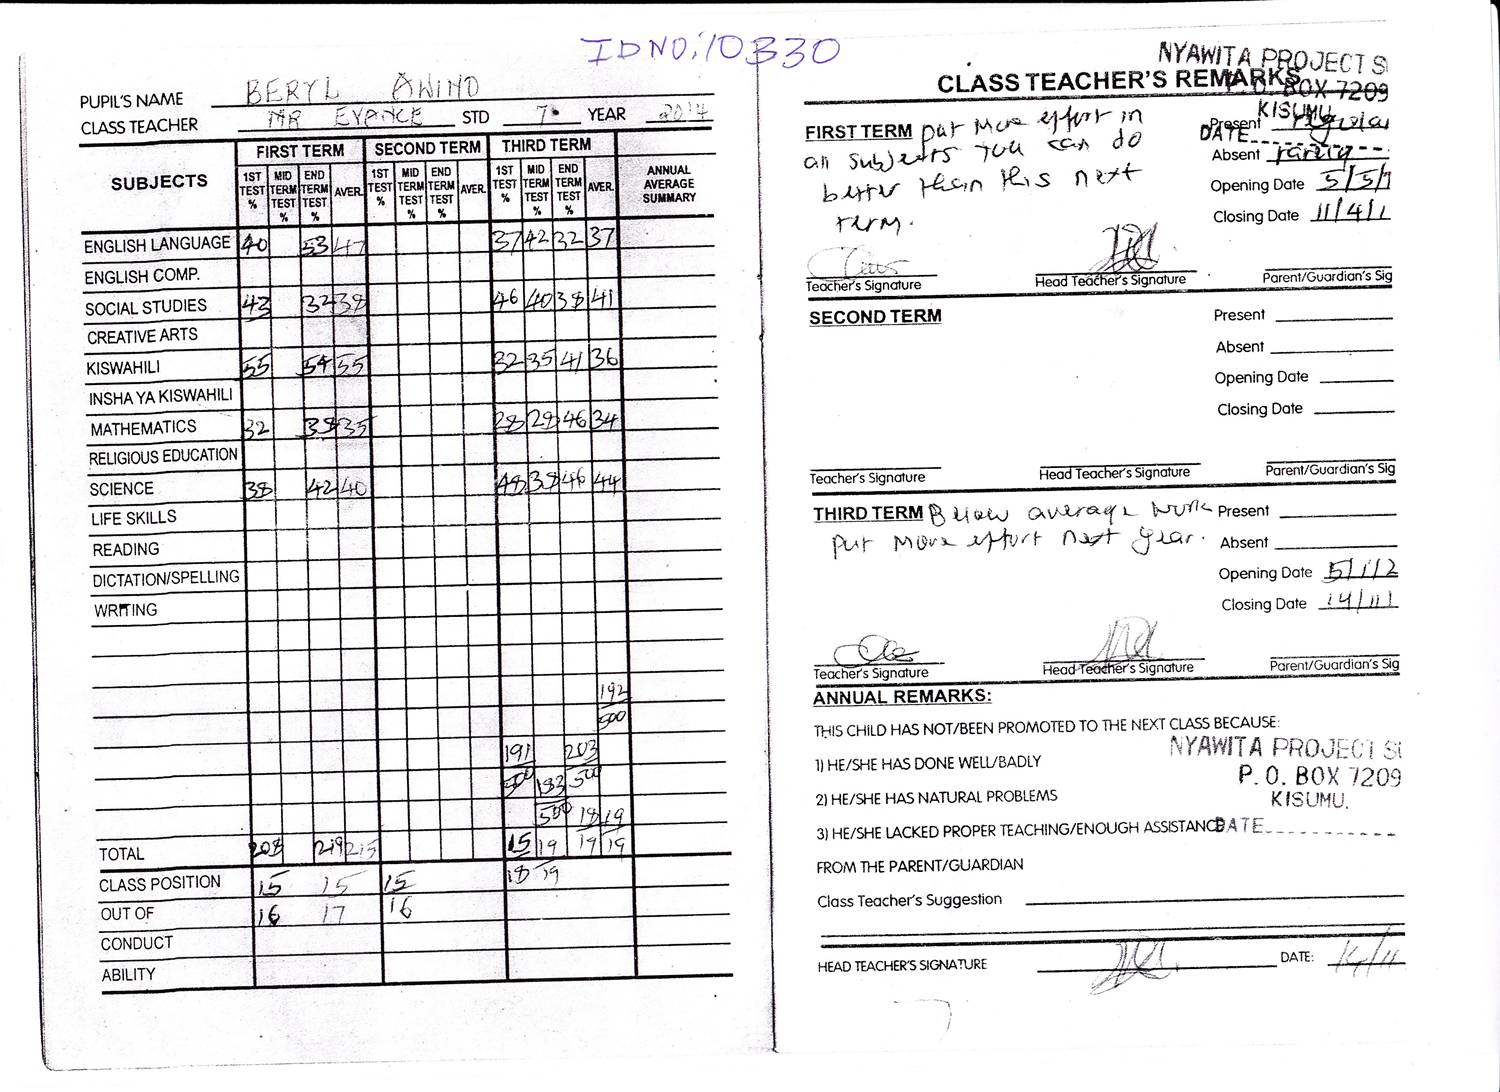 ID NO: 10330
PUPIL'S NAME BERYL AWINO
CLASS TEACHER MR EVANCE STD 7 YEAR 2014
SUBJECTS FIRST TERM SECOND TERM THIRD TERM ANNUAL AVERAGE SUMMARY
1ST TEST % MID TERM TEST % END TERM TEST % AVER. 1ST TEST % MID TERM TEST % END TERM TEST % AVER. 1ST TEST % MID TERM TEST % END TERM TEST % AVER.
ENGLISH LANGUAGE 40 53 47 37 42 32 37
ENGLISH COMP.
SOCIAL STUDIES 43 32 38 46 40 38 41
CREATIVE ARTS
KISWAHILI 55 54 55 32 35 41 36
INSHA YA KISWAHILI
MATHEMATICS 32 38 35 28 28 46 34
RELIGIOUS EDUCATION
SCIENCE 38 42 40 48 38 46 44
LIFE SKILLS
READING
DICTATION/SPELLING
WRITING
192
500
191 203
500 183 500
500 18 19
TOTAL 208 219 215 15 19 19 19
CLASS POSITION 15 15 15 18 19
OUT OF 16 17 16
CONDUCT
ABILITY
NYAWITA PROJECT S
CLASS TEACHER'S REMARKS
P.O. BOX 7209
KISUMU.
DATE
FIRST TERM put more effort in
all subjects you can do
better than this next
term.
Present regular
Absent rarely
Opening Date 5/5/1
Closing Date 11/4/1
Teacher's Signature Head Teacher's Signature Parent/Guardian's Sig
SECOND TERM
Present
Absent
Opening Date
Closing Date
Teacher's Signature Head Teacher's Signature Parent/Guardian's Sig
THIRD TERM Below average work
put more effort next year.
Present
Absent
Opening Date 5/1/12
Closing Date 14/11/
Teacher's Signature Head Teacher's Signature Parent/Guardian's Sig
ANNUAL REMARKS:
THIS CHILD HAS NOT/BEEN PROMOTED TO THE NEXT CLASS BECAUSE:
NYAWITA PROJECT S
1) HE/SHE HAS DONE WELL/BADLY
P. O. BOX 7209
2) HE/SHE HAS NATURAL PROBLEMS
KISUMU.
3) HE/SHE LACKED PROPER TEACHING/ENOUGH ASSISTANCE
DATE
FROM THE PARENT/GUARDIAN
Class Teacher's Suggestion
HEAD TEACHER'S SIGNATURE DATE: 14/11